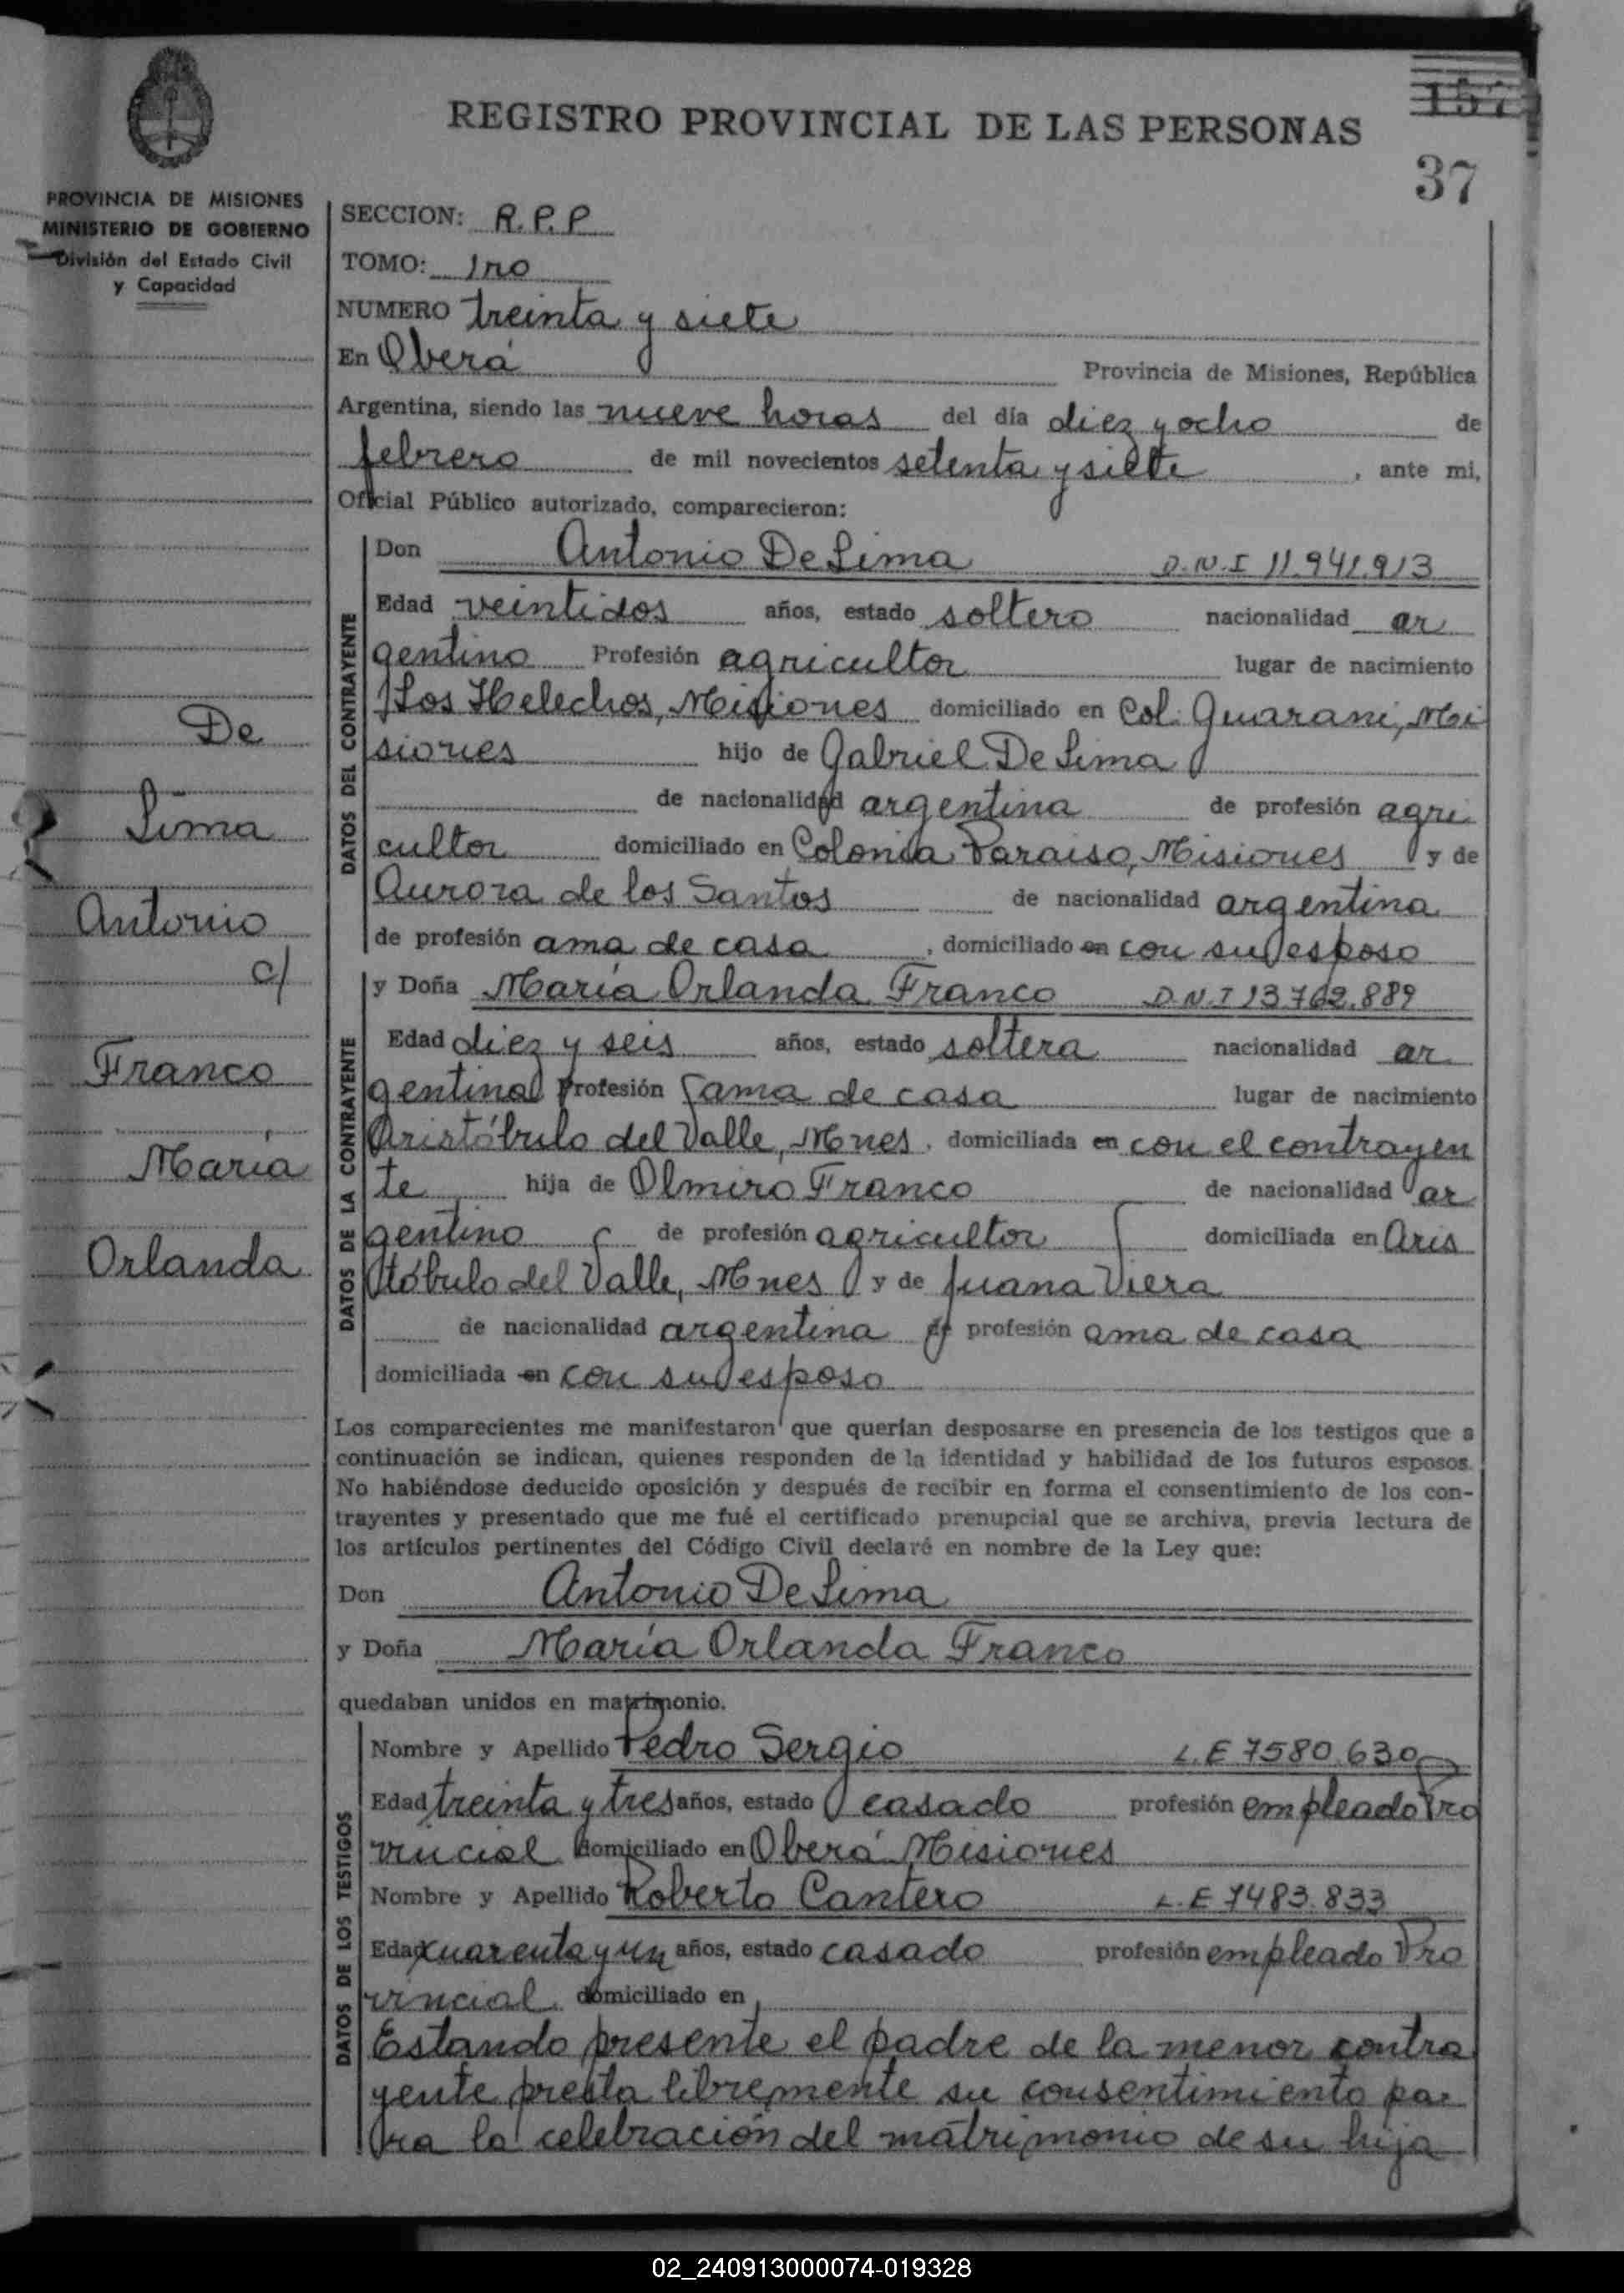 157
REGISTRO PROVINCIAL DE LAS PERSONAS
37
PROVINCIA DE MISIONES
MINISTERIO DE GOBIERNO
División del Estado Civil
y Capacidad
De
Lima
Antonio
c/
Franco
María
Orlanda
SECCION: R.P.P
TOMO: 1ro
NUMERO treinta y siete
En Oberá Provincia de Misiones, República
Argentina, siendo las nueve horas del día diez y ocho de
febrero de mil novecientos setenta y siete, ante mi,
Oficial Público autorizado, comparecieron:
DATOS DEL CONTRAYENTE
Don Antonio De Lima D.N.I 11.941.913
Edad veintidos años, estado soltero nacionalidad ar
gentino Profesión agricultor lugar de nacimiento
Los Helechos, Misiones domiciliado en Col. Guarani, Mi
siones hijo de Gabriel De Lima
de nacionalidad argentina de profesión agri
cultor domiciliado en Colonia Paraiso, Misiones y de
Aurora de los Santos de nacionalidad argentina
de profesión ama de casa, domiciliado en con su esposo
DATOS DE LA CONTRAYENTE
y Doña María Orlanda Franco D.N.I 13.762.889
Edad diez y seis años, estado soltera nacionalidad ar
gentina Profesión ama de casa lugar de nacimiento
Aristóbulo del Valle, Mnes. domiciliada en con el contrayen
te hija de Olmiro Franco de nacionalidad ar
gentino de profesión agricultor domiciliada en Aris
tóbulo del Valle, Mnes y de Juana Viera
de nacionalidad argentina de profesión ama de casa
domiciliada en con su esposo
Los comparecientes me manifestaron que querían desposarse en presencia de los testigos que a
continuación se indican, quienes responden de la identidad y habilidad de los futuros esposos.
No habiéndose deducido oposición y después de recibir en forma el consentimiento de los con-
trayentes y presentado que me fué el certificado prenupcial que se archiva, previa lectura de
los artículos pertinentes del Código Civil declaré en nombre de la Ley que:
Don Antonio De Lima
y Doña María Orlanda Franco
quedaban unidos en matrimonio.
DATOS DE LOS TESTIGOS
Nombre y Apellido Pedro Sergio L.E 7580.630
Edad treinta y tres años, estado casado profesión empleado Pro
vincial domiciliado en Oberá Misiones
Nombre y Apellido Roberto Cantero L.E 7483.833
Edad cuarenta y un años, estado casado profesión empleado Pro
vincial domiciliado en
Estando presente el padre de la menor contra
yente presta libremente su consentimiento pa
ra la celebración del matrimonio de su hija
02_240913000074-019328